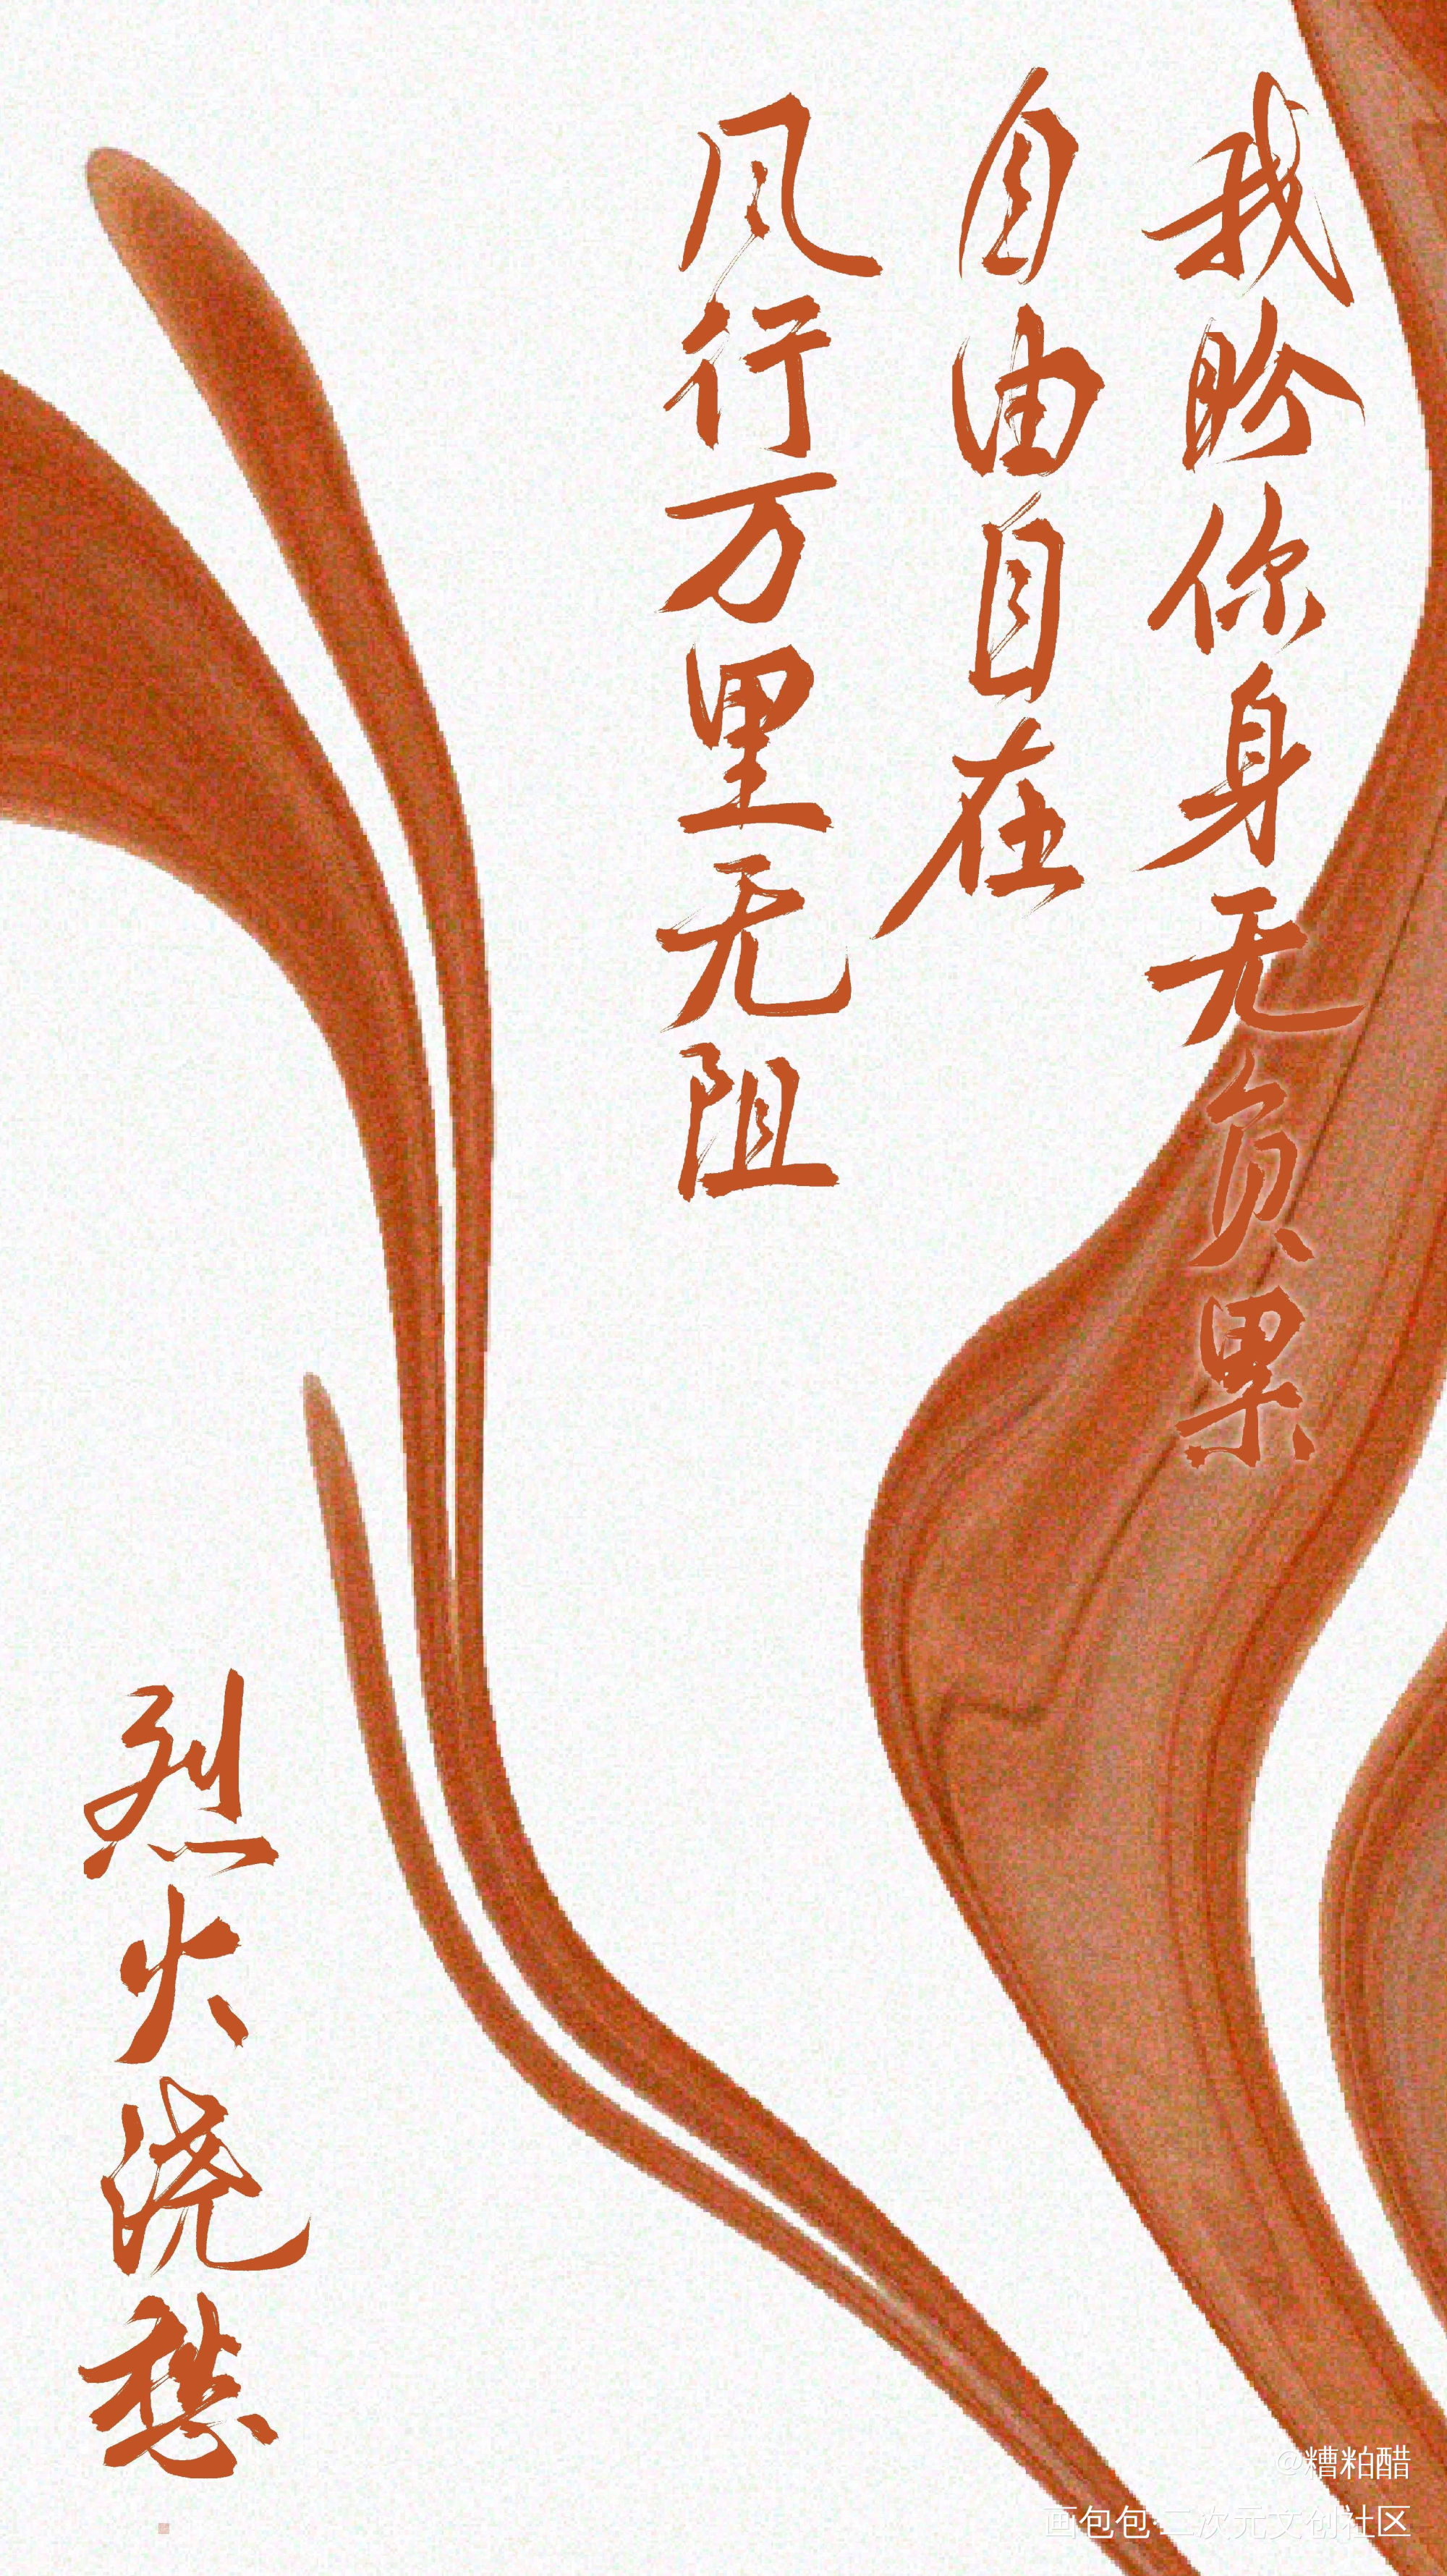 我盼你身无负累
自由自在
风行万里无阻
烈火浇愁
@糟粕醋
画包包·二次元文创社区